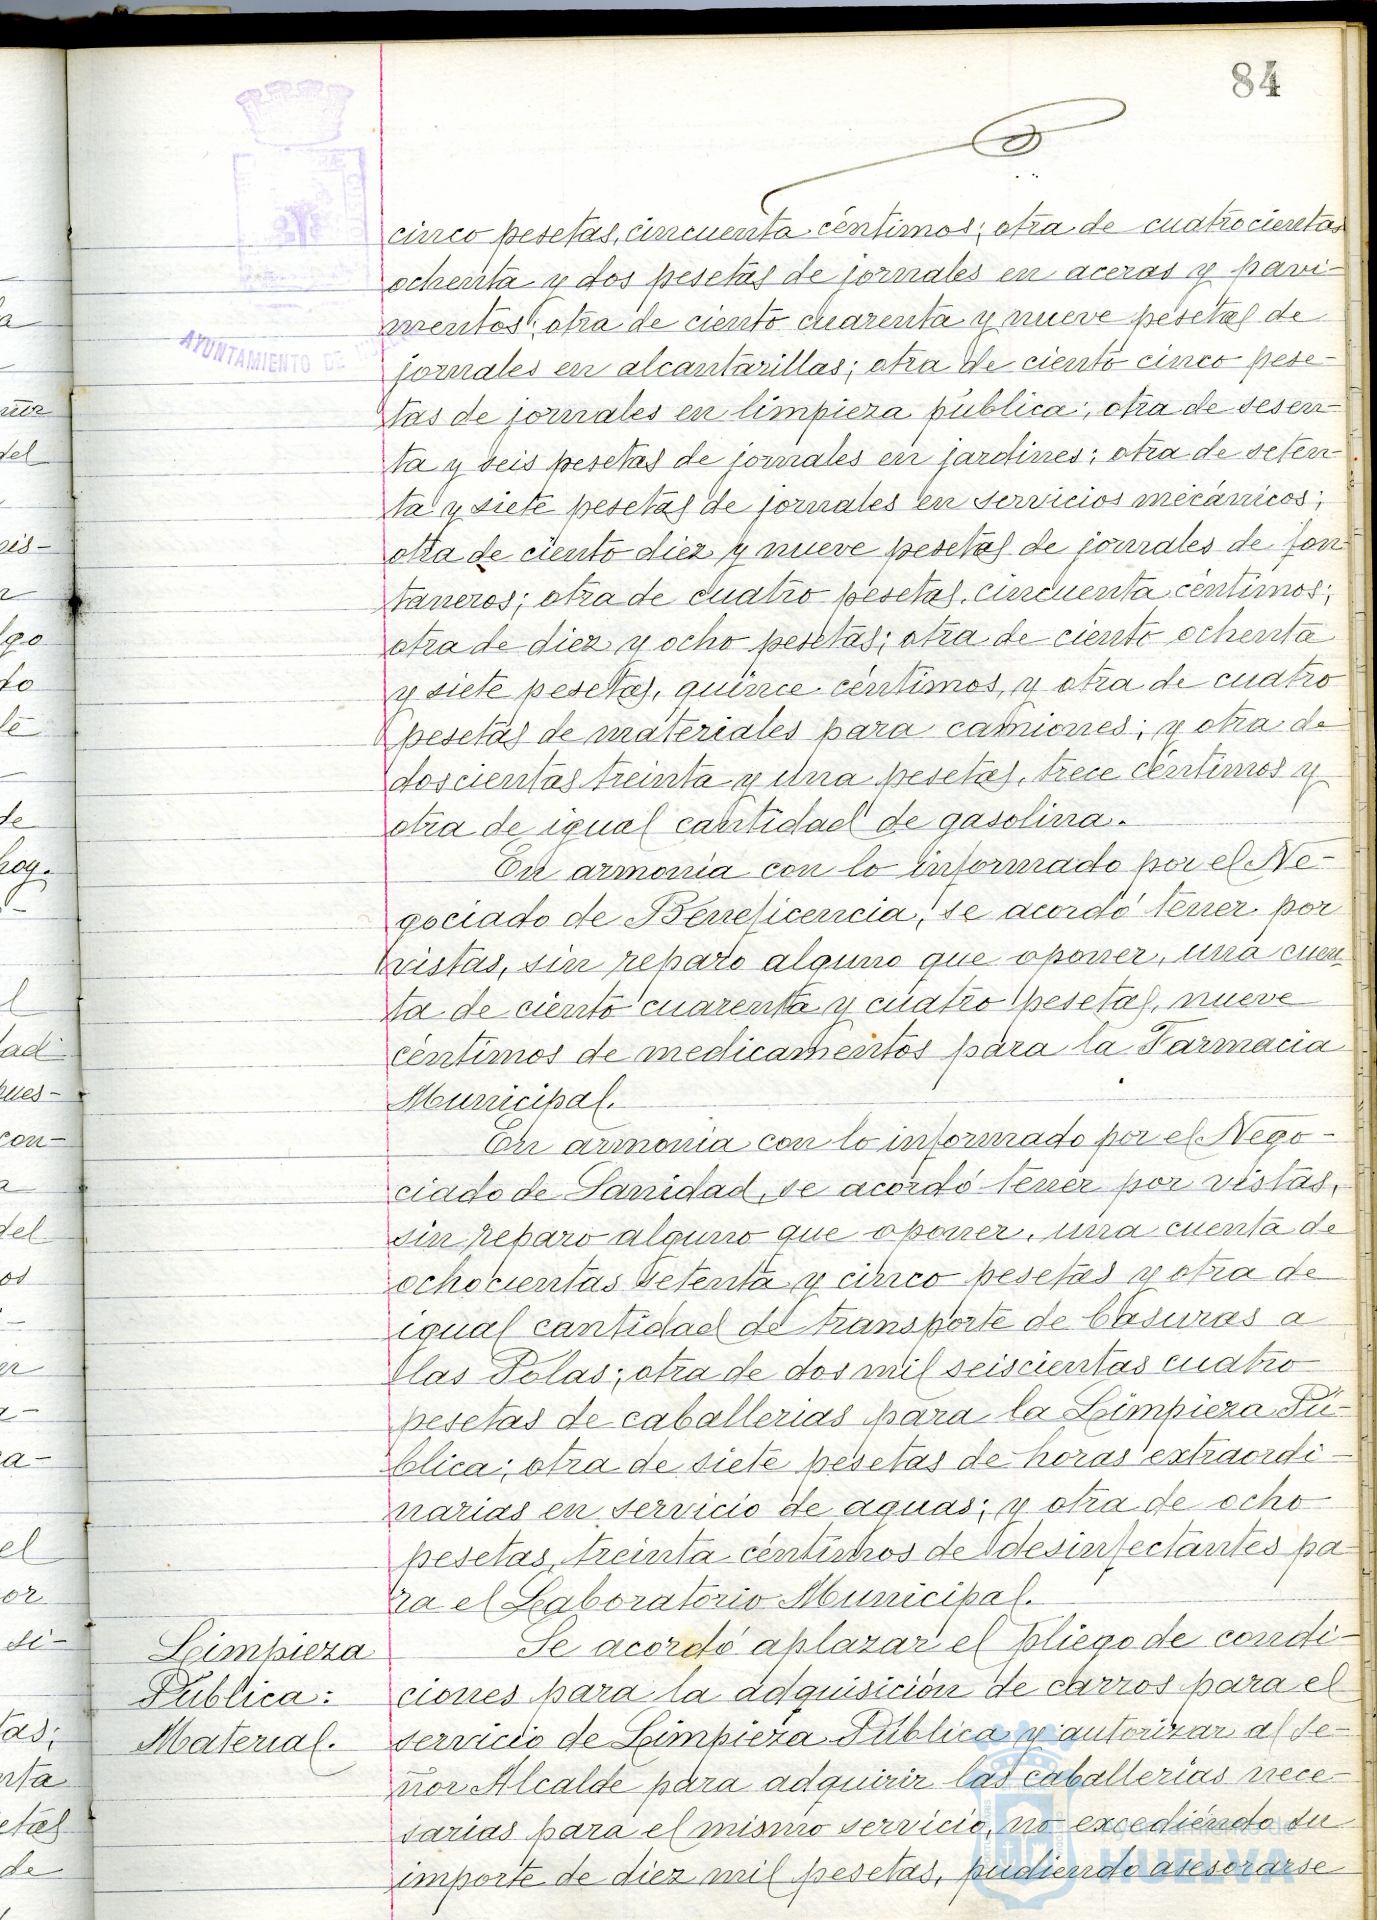 84
AYUNTAMIENTO DE
cinco pesetas, cincuenta céntimos; otra de cuatrocientas
ochenta y dos pesetas de jornales en aceras y pavi-
mentos; otra de ciento cuarenta y nueve pesetas de
jornales en alcantarillas; otra de ciento cinco pese-
tas de jornales en limpieza pública; otra de sesen-
ta y seis pesetas de jornales en jardines; otra de seten-
ta y siete pesetas de jornales en servicios mecánicos;
otra de ciento diez y nueve pesetas de jornales de fon-
taneros; otra de cuatro pesetas, cincuenta céntimos;
otra de diez y ocho pesetas; otra de ciento ochenta
y siete pesetas, quince céntimos, y otra de cuatro
pesetas de materiales para camiones; y otra de
doscientas treinta y una pesetas, trece céntimos y
otra de igual cantidad de gasolina.
En armonía con lo informado por el Ne-
gociado de Beneficencia, se acordó tener por
vistas, sin reparo alguno que oponer, una cuen-
ta de ciento cuarenta y cuatro pesetas, nueve
céntimos de medicamentos para la Farmacia
Municipal.
En armonía con lo informado por el Nego-
ciado de Sanidad, se acordó tener por vistas,
sin reparo alguno que oponer, una cuenta de
ochocientas setenta y cinco pesetas y otra de
igual cantidad de transporte de basuras a
las Polas; otra de dos mil seiscientas cuatro
pesetas de caballerias para la Limpieza Pú-
blica; otra de siete pesetas de horas extraordi-
narias en servicio de aguas; y otra de ocho
pesetas, treinta céntimos de desinfectantes pa-
ra el Laboratorio Municipal.
Limpieza
Pública:
Material.
Se acordó aplazar el pliego de condi-
ciones para la adquisición de carros para el
servicio de Limpieza Pública y autorizar al Se-
ñor Alcalde para adquirir las caballerias nece-
sarias para el mismo servicio, no excediéndo su
importe de diez mil pesetas, pudiendo asesorarse
Ayuntamiento de
HUELVA